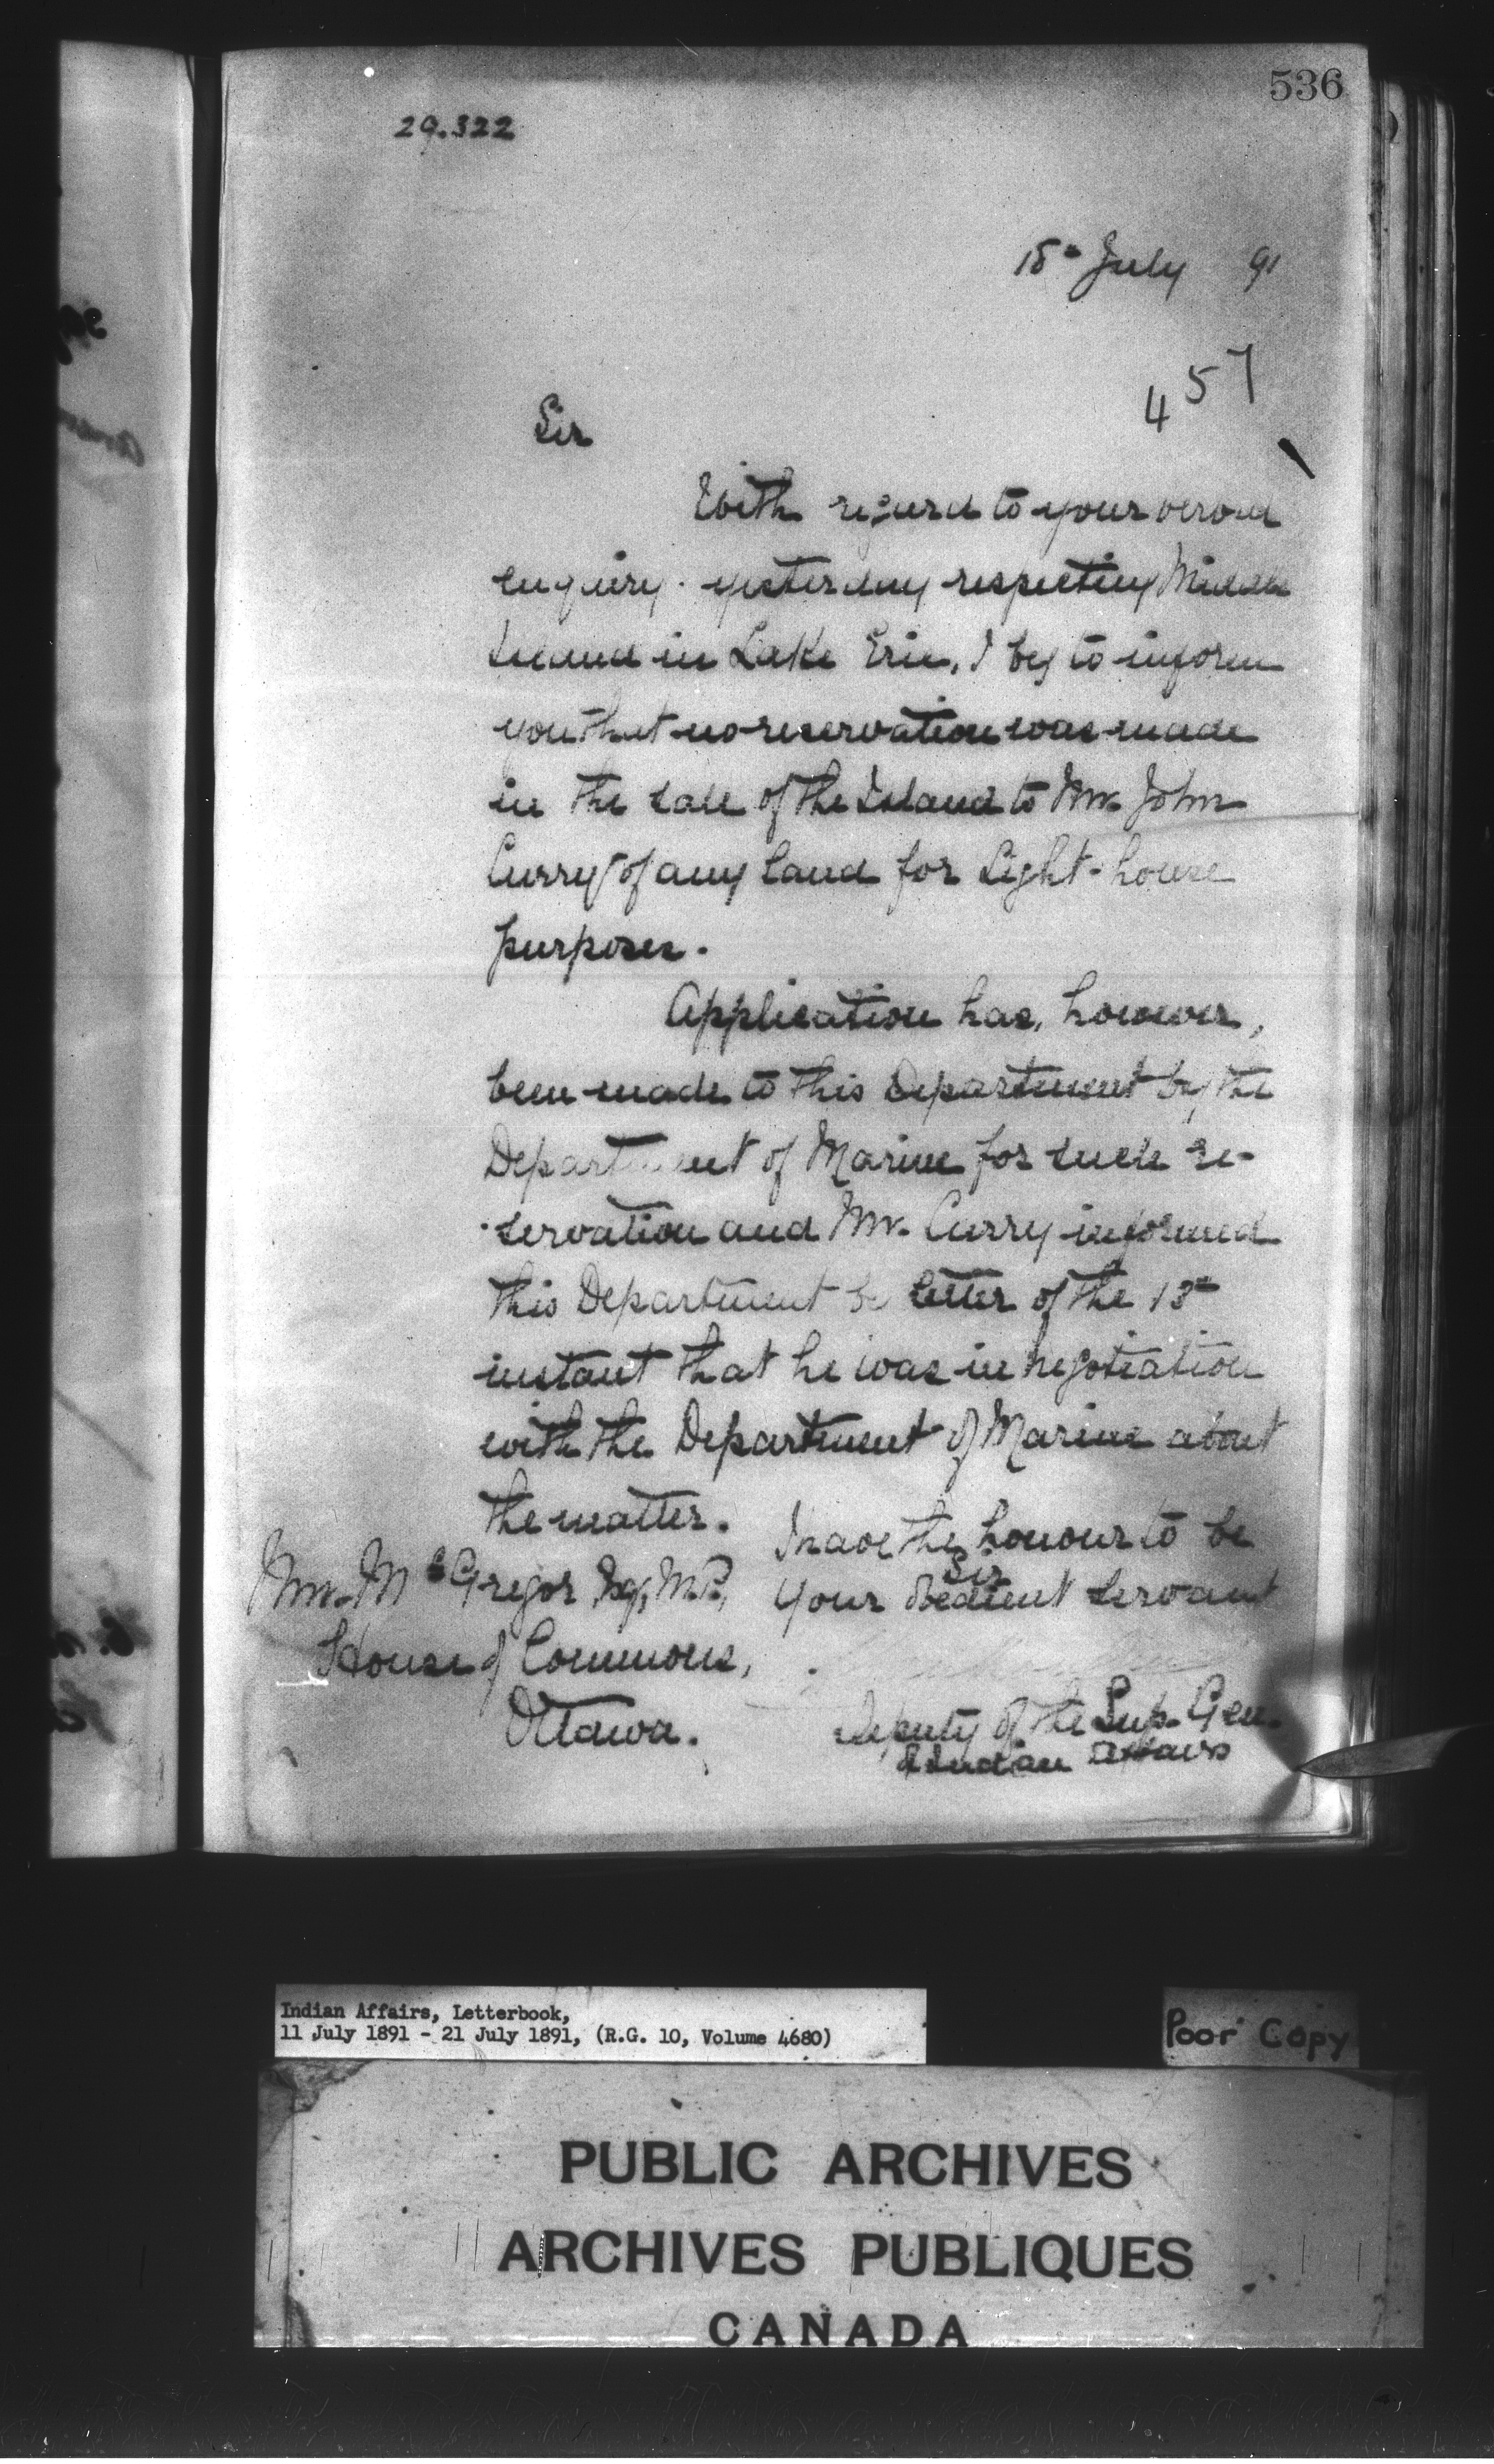 536
29.322
18th July 91
457
Sir
With regard to your verbal
enquiry yesterday respecting Middle
Island in Lake Erie, I beg to inform
you that no reservation was made
in the sale of the Island to Mr. John
Curry of any land for Light-house
purposes.
Application has, however,
been made to this Department by the
Department of Marine for such re-
servation and Mr. Curry informed
this Department by letter of the 13th
instant that he was in negotiation
with the Department of Marine about
the matter.
I have the honour to be
Sir
Your obedient servant
Wm. McGregor Esq, M.P.,
House of Commons,
Ottawa.
Deputy of the Sup. Gen.
of Indian Affairs
Indian Affairs, Letterbook,
11 July 1891 - 21 July 1891, (R.G. 10, Volume 4680)
Poor Copy
PUBLIC ARCHIVES
ARCHIVES PUBLIQUES
CANADA